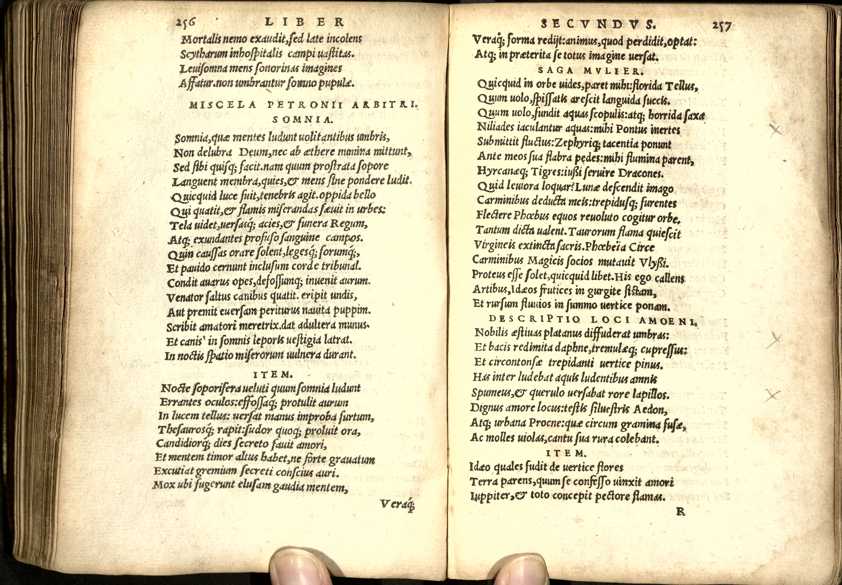 256 LIBER
Mortalis nemo exaudit, sed late incolens
Scytharum inhospitalis campi uastitas.
Leuisomna mens sonorinas imagines
Affatur. non umbrantur somno pupulæ.
MISCELA PETRONII ARBITRI.
SOMNIA.
Somnia, quæ mentes ludunt uolitantibus umbris,
Non delubra Deum, nec ab æthere numina mittunt,
Sed sibi quisq; facit. nam quum prostrata sopore
Languent membra, quies, & mens sine pondere ludit.
Quicquid luce fuit, tenebris agit. oppida bello
Qui quatit, & flamis miserandas sæuit in urbes:
Tela uidet, uersasq; acies, & funera Regum,
Atq; exundantes profuso sanguine campos.
Quin caussas orare solent, legesq; forumq;,
Et pauido cernunt inclusum corde tribunal.
Condit auarus opes, defossumq; inuenit aurum.
Venator saltus canibus quatit. eripit undis,
Aut premit euersam periturus nauita puppim.
Scribit amatori meretrix. dat adultera munus.
Et canis' in somnis leporis uestigia latrat.
In noctis spatio miserorum uulnera durant.
ITEM.
Nocte soporifera ueluti quum somnia ludunt
Errantes oculos: effossaq; protulit aurum
In lucem tellus: uersat manus improba furtum,
Thesaurosq; rapit: sudor quoq; proluit ora,
Candidiorq; dies secreto fauit amori,
Et mentem timor altus habet, ne forte grauatum
Excutiat gremium secreti conscius auri.
Mox ubi fugerunt elusam gaudia mentem,
Veraq;
SECVNDVS. 257
Veraq; forma redijt: animus, quod perdidit, optat:
Atq; in præterita se totus imagine uersat.
SAGA MVLIER.
Quicquid in orbe uides, paret mihi: florida Tellus,
Quum uolo, spissatis arescit languida succis.
Quum uolo, fundit aquas scopulis: atq; horrida saxa
Niliades iaculantur aquas: mihi Pontus inertes
Submittit fluctus: Zephyriq; tacentia ponunt
Ante meos sua flabra pedes: mihi flumina parent,
Hyrcanæq; Tigres: iussi seruire Dracones.
Quid leuiora loquar? Lunæ descendit imago
Carminibus deducta meis: trepidusq; furentes
Flectere Phœbus equos reuoluto cogitur orbe.
Tantum dicta ualent. Taurorum flama quiescit
Virgineis extincta sacris. Phœbeïa Circe
Carminibus Magicis socios mutauit Vlyssi.
Proteus esse solet, quicquid libet. His ego callens
Artibus, Idæos frutices in gurgite sistam,
Et rursum fluuios in summo uertice ponam.
DESCRIPTIO LOCI AMOENI.
Nobilis æstiuas platanus diffuderat umbras:
Et bacis redimita daphne, tremulæq; cupressus:
Et circontonsæ trepidanti uertice pinus.
Has inter ludebat aquis ludentibus amnis
Spumeus, & querulo uersabat rore lapillos.
Dignus amore locus: testis siluestris Aedon,
Atq; urbana Procne: quæ circum gramina fusæ,
Ac molles uiolas, cantu sua rura colebant.
ITEM.
Idæo quales fudit de uertice flores
Terra parens, quum se confesso uinxit amori
Iuppiter, & toto concepit pectore flamas.
R